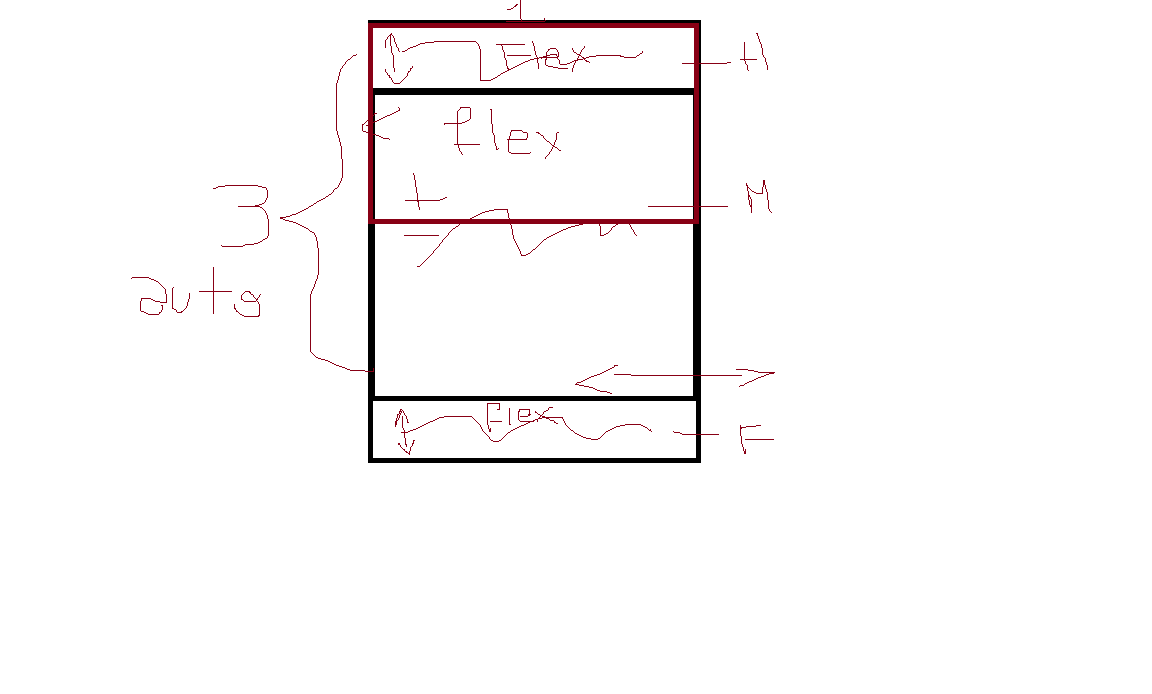 1
Flex
H
flex
M
3
auto
flex
F